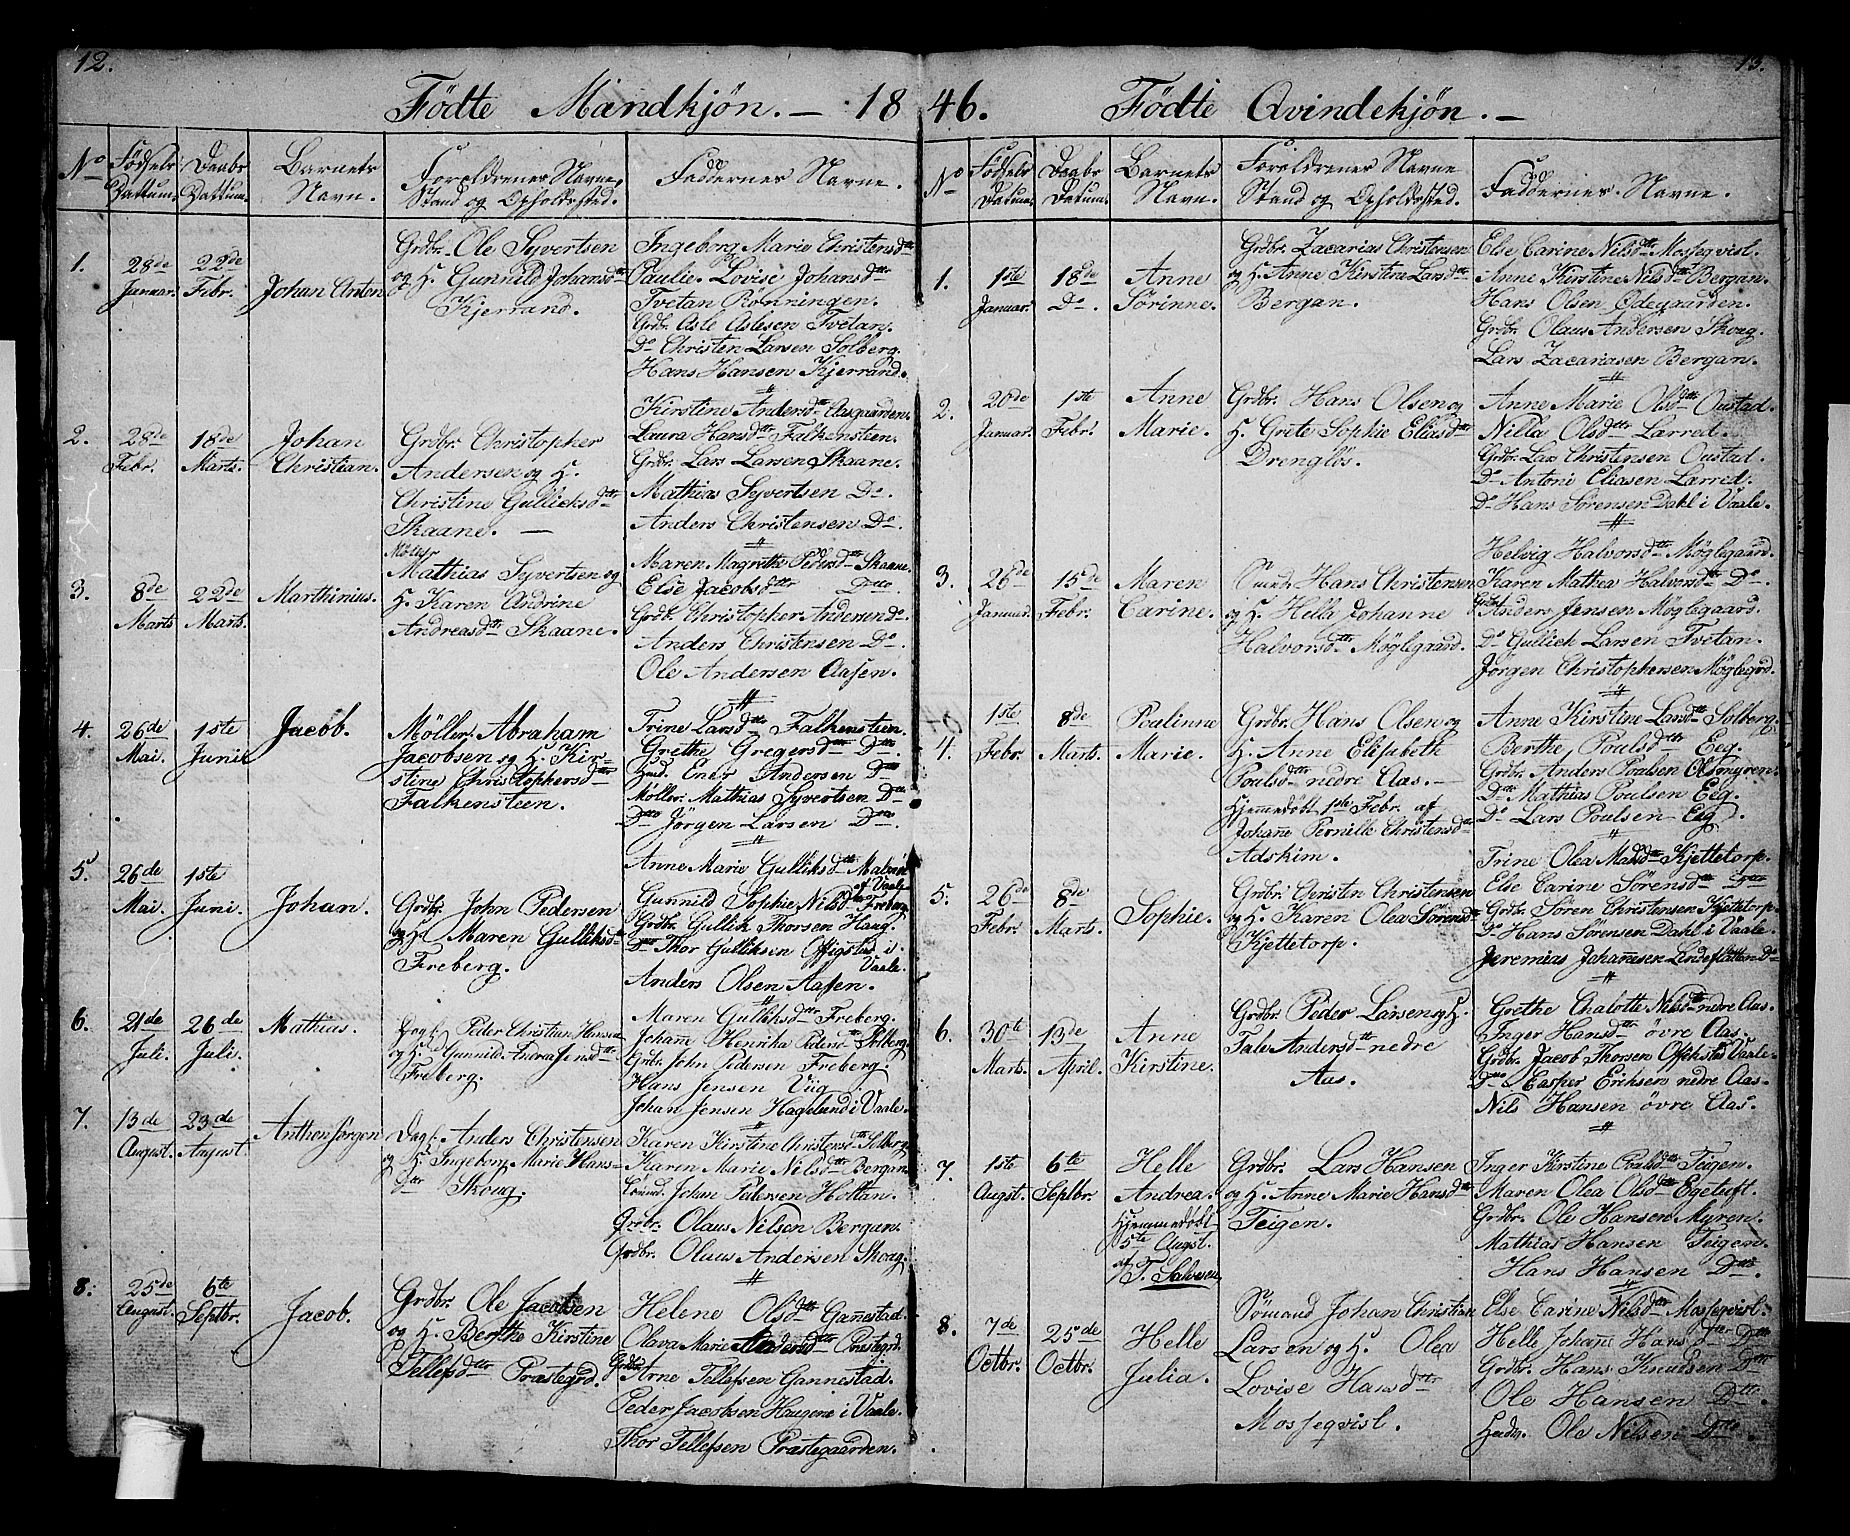 12.
Födte Mandkjön. — 18
No
Födsels Dattum.
Daabs Dattum.
Barnets Navn.
Foreldrenes Navne, Stand og Opholdssted.
Faddernes Navne.
1.
28de Januar.
22de Febr.
Johan Anton
Grdbr. Ole Syvertsen
og H. Gunnild Johansdtr
Kjerrand.
Ingeborg Marie Christensdtr
Paulie Lovise Johansdtr
Tvetan Rönningen.
Grdbr. Asle Aslesen Tvetan.
Do Christen Larsen Solberg.
Hans Hansen Kjerrand.
2.
28de Febr.
18de Marts.
Johan Christian.
Grdbr. Christopher
Andersen og H.
Christine Gullichsdtr
Skaane. —
Kirstine Andersdtr Aasgaarden.
Laura Hansdtr Falkensteen.
Grdbr. Lars Larsen Skaane.
Mathias Syvertsen Do.
Anders Christensen Do.
3.
8de Marts
22de Marts.
Marthinius.
Möller
Mathias Syvertsen og
H. Karen Andrine
Andreasdtr Skaane.
Maren Magrethe Pedersdtr Skaane.
Else Jacobsdtr Ditto
Grdbr. Christopher Andersen do.
Anders Christensen Do.
Ole Andersen Aasen.
4.
26de Mai.
1ste Junii
Jacob.
Möller. Abraham
Jacobsen og H. Kir-
stine Christophersdtr
Falkensteen.
Trine Larsdtr Falkensteen.
Grethe Gregersdtr Dtto.
Huusd. Ener Andersen Dtto
Möller. Mathias Syvertsen Dtto
Ditto Jörgen Larsen Ditto.
5.
26de Mai.
1ste Juni.
Johan.
Grdbr. John Pedersen
og H. Maren Gulliksdtr
Freberg.
Anne Marie Gulliksdtr
af Vaale
Gunnild Sophie Nilsdtr Freberg
Grdbr. Gullik Thorsen Haug.
Do Thor Gulliksen i
Vaale.
Anders Olsen Aasen.
6.
21de Juli.
26de Juli.
Mathias.
Dagl. Peder Christian Hansen
og H. Gunnild Andrea Jensdtr
Freberg.
Maren Gulliksdtr Freberg.
Johanne Henrika Pedersdtr
Grdbr. John Pedersen Freberg.
Hans Jensen Viig.
Johan Jensen Hagelund i Vaale.
7.
13de August.
23de August.
Anthon Jörgen
Dagl. Anders Christensen
og H. Ingeborg Marie Hans-
dtr Skoug.
Karen Kirstine Christensdtr Solberg
Karen Marie Nilsdtr Bergan.
Sömnd. Johan Pedersen Holtan.
Grdbr. Olaus Nilsen Bergan.
Grdbr. Olaus Andersen Skoug.
8.
25de August.
6te Septbr.
Jacob.
Grdbr. Ole Jacobsen
og H. Berthe Kirstine
Tellefsdtr Præstegrd.
Helene Olsdtr Gannestad.
Olava Marie Andersdtr Præstegrd.
Grdbr. Arne Tellefsen Gannestad.
Peder Jacobsen Haugene i Vaale.
Thor Tellefsen Præstegaarden.
13.
46. Födte Qvindekjön. —
No
Födsels Datum.
Daabs Datum.
Barnets Navn.
Foreldrenes Navne Stand og Opholdssted.
Faddernes Navne.
1.
1ste Januar.
18de Do.
Anne Sörinne.
Grdbr. Zacarias Christensen
og H. Anne Kirstine Larsdtr
Bergan.
Else Carine Nilsdtr Mosseqvisl.
Anne Kirstine Nilsdtr Bergan.
Hans Olsen Ödegaarden.
Grdbr. Olaus Andersen Skoug.
Lars Zacariasen Bergan.
2.
20de Januar.
1ste Febr.
Anne Marie.
Grdbr. Hans Olsen og
H. Grete Sophie Eliasdtr
Drenglös.
Anne Marie Olsdtr Oustad.
Nilla Olsdtr Larred.
Grdbr. Lars Christensen Oustad.
Do Antoni Eliasen Larred.
Do Hans Sörensen Dahl i Vaale.
3.
26de Januar.
15de Febr.
Maren Carine.
Huusd. Hans Christensen
og H. Hella Johanne
Halvorsdtr Möglegaard.
Helvig Halvorsdtr Möglegaard.
Karen Mathea Halvorsdtr Do.
Grdbr. Anders Jensen Möglegaard.
Do Gullich Larsen Tvetan.
Jörgen Christophersen Möglegrd.
4.
1ste Febr.
8de Marts.
Poulinne Marie.
Grdbr. Hans Olsen og
H. Anne Elisabeth
Poulsdtr nedre Aas.
Hjemmedöbt 1ste Febr. af
Johane Pernille Christensdtr
Adskim.
Anne Kirstine Larsdtr Solberg.
Berthe Poulsdtr Eeg.
Grdbr. Anders Poulsen Olsmyren.
Do Mathias Poulsen Eeg.
Do Lars Poulsen Eeg.
5.
26de Febr.
8de Marts.
Sophie.
Grdbr. Christen Christensen
og H. Karen Olea Sörensdtr
Kjettetorp.
Trine Olea Madsdtr Kjettetorp.
Else Carine Sörensdtr Ditto
Grdbr. Sören Christensen Kjettetorp.
Do Hans Sörensen Dahl i Vaale.
Jeremias Johannesen Lindesletten Do
6.
30te Marts.
13de April.
Anne Kirstine.
Grdbr. Peder Larsen og H.
Tale Andersdtr nedre
Aas.
Grethe Chalotte Nilsdtr nedre Aas.
Inger Hansdtr övre Aas.
Grdbr. Jacob Thorsen Vaale.
Do Casper Eriksen nedre Aas.
Nils Hansen övre Aas.
7.
1ste Augst.
6te Septbr.
Helle Andrea.
Hjemmedöbt
5te Augst.
af T. Salvesen
Grdbr. Lars Hansen
og H. Anne Marie Hansdtr
Teigen.
Inger Kirstine Poulsdtr Teigen.
Maren Olea Olsdtr Egetuft.
Grdbr. Ole Hansen Myren.
Mathias Hansen Teigen.
Hans Hansen Ditto.
8.
7de Octbr.
25de Octbr.
Helle Julia.
Sömand Johan Christian
Larsen og H. Olea
Lovise Hansdtr
Mosseqvisl.
Else Carine Nilsdtr Mosseqvisl.
Helle Johane Hansdtr Ditto
Grdbr. Hans Knudsen Ditto
Ole Hansen Dtto.
Ole Nilsen Ditto.